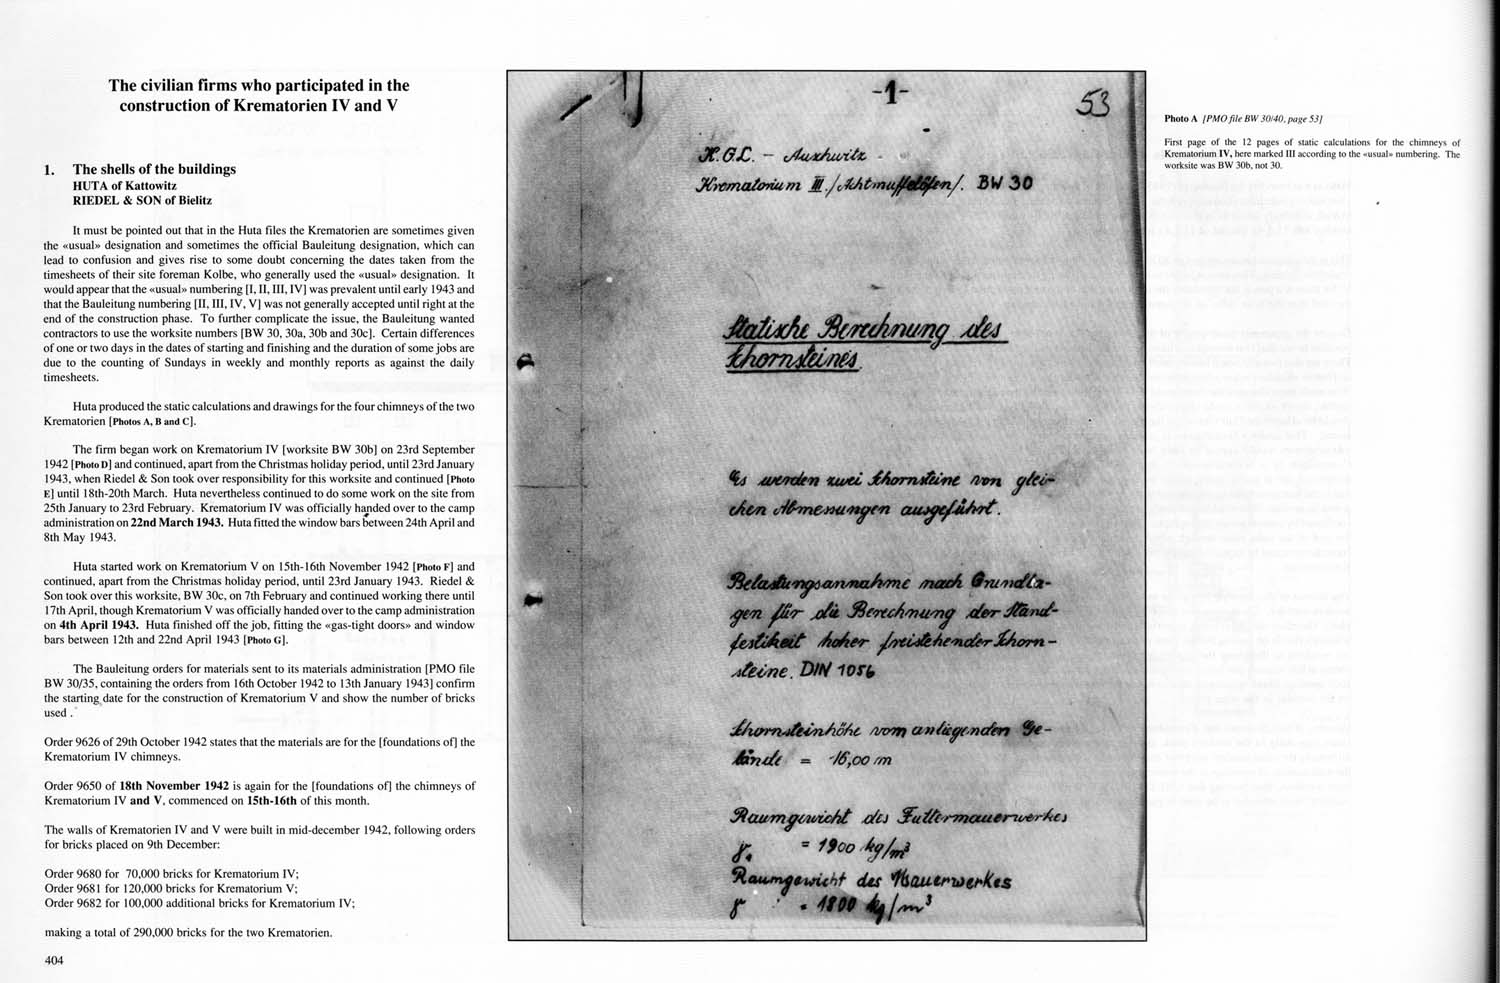 The civilian firms who participated in the
construction of Krematorien IV and V
1. The shells of the buildings
HUTA of Kattowitz
RIEDEL & SON of Bielitz
It must be pointed out that in the Huta files the Krematorien are sometimes given
the «usual» designation and sometimes the official Bauleitung designation, which can
lead to confusion and gives rise to some doubt concerning the dates taken from the
timesheets of their site foreman Kolbe, who generally used the «usual» designation. It
would appear that the «usual» numbering [I, II, III, IV] was prevalent until early 1943 and
that the Bauleitung numbering [II, III, IV, V] was not generally accepted until right at the
end of the construction phase. To further complicate the issue, the Bauleitung wanted
contractors to use the worksite numbers [BW 30, 30a, 30b and 30c]. Certain differences
of one or two days in the dates of starting and finishing and the duration of some jobs are
due to the counting of Sundays in weekly and monthly reports as against the daily
timesheets.
Huta produced the static calculations and drawings for the four chimneys of the two
Krematorien [Photos A, B and C].
The firm began work on Krematorium IV [worksite BW 30b] on 23rd September
1942 [Photo D] and continued, apart from the Christmas holiday period, until 23rd January
1943, when Riedel & Son took over responsibility for this worksite and continued [Photo
E] until 18th-20th March. Huta nevertheless continued to do some work on the site from
25th January to 23rd February. Krematorium IV was officially handed over to the camp
administration on 22nd March 1943. Huta fitted the window bars between 24th April and
8th May 1943.
Huta started work on Krematorium V on 15th-16th November 1942 [Photo F] and
continued, apart from the Christmas holiday period, until 23rd January 1943. Riedel &
Son took over this worksite, BW 30c, on 7th February and continued working there until
17th April, though Krematorium V was officially handed over to the camp administration
on 4th April 1943. Huta finished off the job, fitting the «gas-tight doors» and window
bars between 12th and 22nd April 1943 [Photo G].
The Bauleitung orders for materials sent to its materials administration [PMO file
BW 30/35, containing the orders from 16th October 1942 to 13th January 1943] confirm
the starting date for the construction of Krematorium V and show the number of bricks
used .
Order 9626 of 29th October 1942 states that the materials are for the [foundations of] the
Krematorium IV chimneys.
Order 9650 of 18th November 1942 is again for the [foundations of] the chimneys of
Krematorium IV and V, commenced on 15th-16th of this month.
The walls of Krematorien IV and V were built in mid-december 1942, following orders
for bricks placed on 9th December:
Order 9680 for 70,000 bricks for Krematorium IV;
Order 9681 for 120,000 bricks for Krematorium V;
Order 9682 for 100,000 additional bricks for Krematorium IV;
making a total of 290,000 bricks for the two Krematorien.
404
-1-
53
K.G.L. - Auschwitz -
Krematorium III./Achtmuffelöfen/. BW 30
Statische Berechnung des
Schornsteines
Es werden zwei Schornsteine von glei-
chen Abmessungen ausgeführt.
Belastungsannahme nach Grundla-
gen für die Berechnung der Stand-
festikeit hoher freistehender Schorn-
steine. DIN 1056
Schornsteinhöhe vom anliegenden Ge-
lände = 16,00 m
Raumgewicht des Futtermauerwerkes
γ. = 1900 kg/m³
Raumgewicht des Mauerwerkes
γ = 1800 kg/m³
Photo A [PMO file BW 30/40, page 53]
First page of the 12 pages of static calculations for the chimneys of
Krematorium IV, here marked III according to the «usual» numbering. The
worksite was BW 30b, not 30.